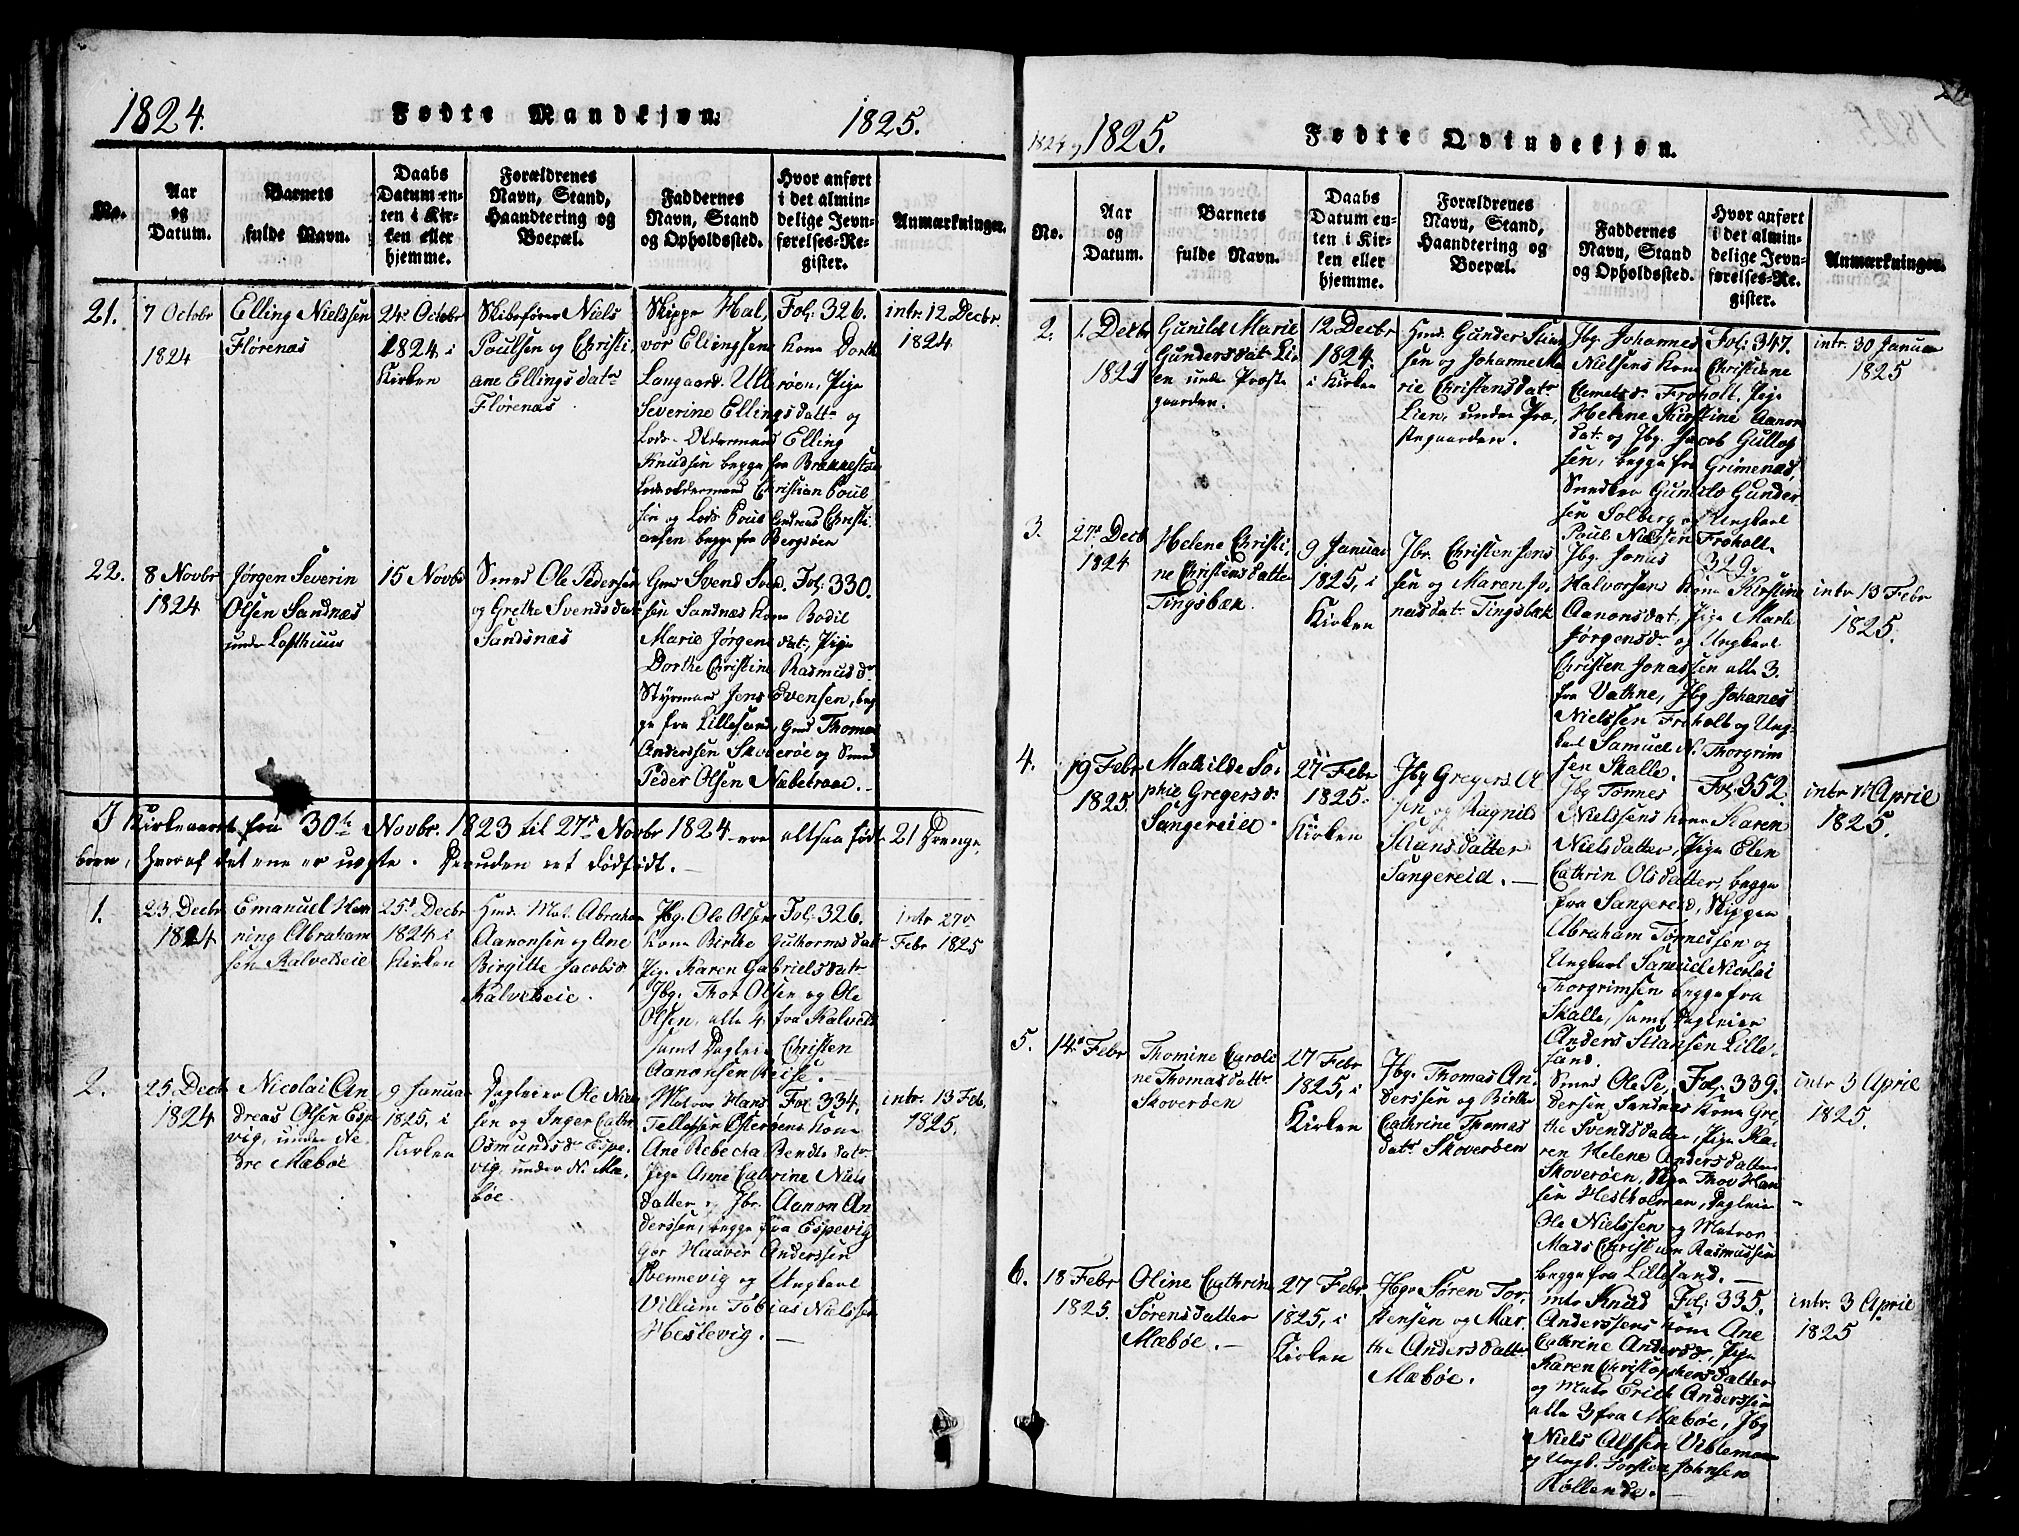 1824. Fødte Mandkjøn. 1825.
No.
Aar
og
Datum.
Barnets
fulde Navn.
Daabs
Datum en-
ten i Kir-
ken eller
hjemme.
Forældrenes
Navn, Stand,
Haandtering og
Boepæl.
Faddernes
Navn, Stand
og Opholdssted.
Hvor anført
i det almin-
delige Jevn-
førelses-Re-
gister.
Anmærkninger.
21.
7 Octobr
1824
Elling Nielsen
Flørenæs
24 Octobr
1824 i
Kirken
Skibsfører Niels
Poulsen og Christi-
ane Ellingsdatr
Flørenæs
Skippr Hal-
vor Ellingsens Kone Dorth
Langaard, Ulvrøen, Pige
Severine Ellingsdattr og
Lods-Oldermand Elling
Knudsen begge fra Brennestu
Lodsoldermand Christian Poul-
sen og Lods Pouls Andreas Christi-
ansen begge fra Bergsøen
Fol: 326.
intr. 12 Decbr
1824
22.
8 Novbr
1824
Jørgen Severin
Olsen Sandnæs
under Lofthuus
15 Novbr
Smed Ole Pedersen
og Grethe Svendsdatr
Sandsnæs
Gmd Svend Svend-
sen Sandnæs Kone Bodil
Marie Jørgensdat, Pige
Dorthe Christine Rasmusdr
Styrmand Jens Evensen, beg-
ge fra Lillesand, Gmd Thomas
Anderssen Skoverøe og Smed
Peder Olsen Næbetvae.
Fol: 330.
I Kirkeaaret fra 30te Novbr. 1823 til 27de Novbr 1824 ere altsaa født 21 Drenge-
børn, hvoraf det ene er uægte. Desuden eet dødfødt.
1.
23 Decbr
1824
Emanuel Hen-
ning Abraham-
sen Kalvekeie
25d Decbr
1824 i
Kirken
Hmd. Mat. Abraham
Aanonsen og Ane
Birgitte Jacobsd
Kalvekeie.
Jbg. Ole Olsens
Kone Birthe Guthormsdatr
Pig. Karen Gabrielsdatr
Jbg. Thor Olsen og Ole
Olsen, alle 4 fra Kalveke
samt Dagleier Christen
Aanonsen Keise.
Fol: 326.
intr 27
Febr 1825
2.
25 Decbr
1824
Nicolai An-
dreas Olsen Espe-
vig, under Ne-
dre Mæbøe
9 Januar
1825, i
Kirken
Dagleier Ole Niel-
sen og Inger Cathr
Osmundsdr Espe-
vig, under N. Mæ-
bøe.
Matros Hans
Tellefsen Østergens Kone
Ane Rebecka Bendtsdatr
Pige Anne Cathrine Niels
datter, Jbr. Aanon An-
derssen, begge fra Espevig
Haaver Anderssen
Svennevig og Ungkarl
Villum Tobias Nielssen
Heslevig.
Fol: 334.
intr. 13 Feb.
1825.
1824 og 1825. Fødte Qvindekjøn.
No.
Aar
og
Datum.
Barnets
fulde Navn.
Daabs
Datum en-
ten i Kir-
ken eller
hjemme.
Forældrenes
Navn, Stand,
Haandtering og
Boepæl.
Faddernes
Navn, Stand
og Opholdssted.
Hvor anført
i det almin-
delige Jevn-
førelses-Re-
gister.
Anmærkninger.
2.
1. Decbr
1824
Gunild Marie
Gundersdat Li-
en under Præste-
gaarden.
12 Decbr
1824.
i Kirken
Hmd. Gunder Stian-
sen og Johanne Ma-
rie Christensdatr
Lien, under Præ-
stegaarden.
Jbg. Johannes
Nielsens Kone Christiane
Clemetsd. Froholt. Pige
Helene Kirstine Aanons
dat. og Jbg. Jacob Gullof-
sen, begge fra Grimenæs,
Snedker Gunuld Gunder-
sen Solberg og Ungkarl
Poul Nielsen Froholt.
Fol: 347.
intr. 30 Januar
1825
3.
27d Decb
1824
Helene Christi-
ne Christensdatter
Tingsbæk.
9 Januar
1825, i
Kirken
Jbr. Christen Jens-
sen og Maren Jo-
nasdat. Tingsbæk
Jbg. Jonas
Halvorsens Kone Kirstine
Aanonsdat, Pige Marte
Jørgensd. og Ungkarl
Christen Jonassen alle 3
fra Vathne, Jbg Johanes
Nielssen Froholt og Ung-
karl Samuel N. Thorgrim
sen Skalle.
329.
intr 13 Febr
1825.
4.
19 Febr
1825.
Mathilde So-
phie Gregersdr
Sangereid.
27 Febr
1825.
Kirken
Jbg Gregers Ol-
sen og Ragnild
Stiansdatter
Sangereid.
Jbg Tønnes
Nielssens Kone Karen
Nielsdatter, Pige Elen
Cathrin Olsdatter, begge
fra Sangereid, Skipper
Abraham Tønnessen og
Ungkarl Samuel Nicolai
Thorgrimsen begge fra
Skalle, samt Dagleier
Anders Stiansen Lille-
sand.
Fol: 352.
intr 14 April
1825.
5.
14d Febr
Thomine Caroli-
ne Thomasdattr
Skoverøen
27 Febr
1825, i
Kirken
Jbg. Thomas An-
derssen og Birthe
Cathrine Thomas
datr Skoverøen
Smed Ole Pe-
dersen, Sandnæs Kone Gre-
the Svendsdatter, Pige Ka-
ren Helene Andersdatter
Skoverøen, Thov Han-
sen Hestholmen, Dagleier
Ole Nielssen og Matros
Mads Christian Rasmussen
begge fra Lillesand.
Fol: 339.
intr 3 April
1825.
6.
18 Febr
1825.
Oline Cathrine
Sørensdatter
Mæbøe.
27 Febr
1825, i
Kirken
Jbgr Søren Tor-
stensen og Mar-
the Andersdattr
Mæbøe.
Mtr Knud
Anderssens Kone Ane
Cathrine Andersd., Pige
Karen Christophersdatter
og Matr Erich Anderssen
alle 3 fra Mæbøe, Jbg
Niels Alfsen Viblemoe
og Ungk. Torsten Johnsen
Røllende.
Fol: 335.
intr. 3 April
1825